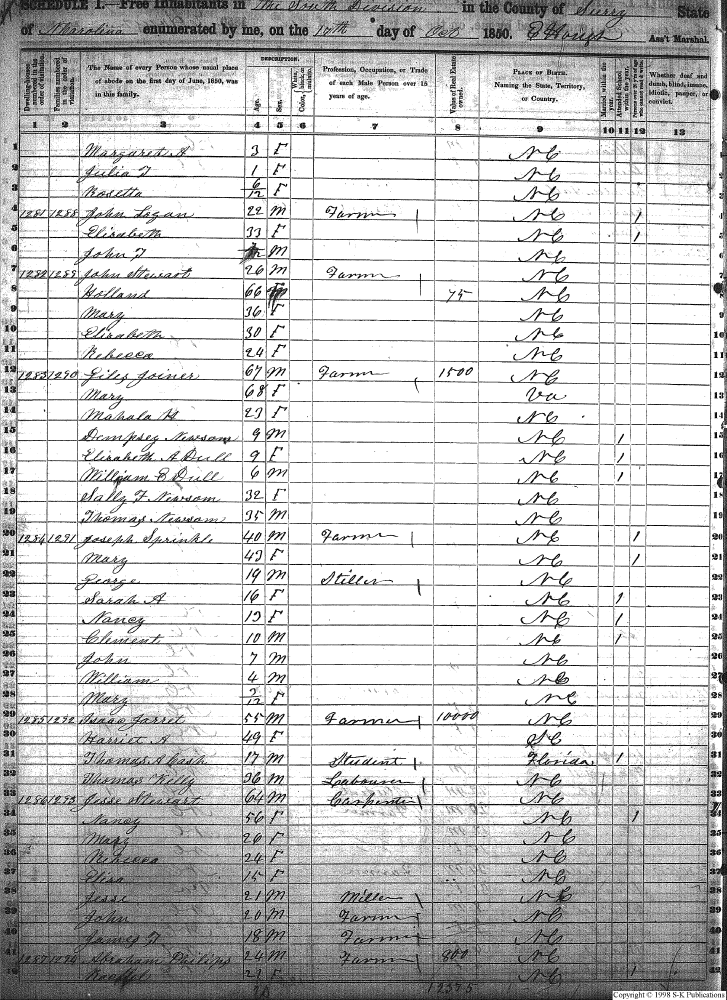 SCHEDULE I.—Free Inhabitants in The South Division in the County of Surry State
of N Carolina enumerated by me, on the 19th day of Oct 1850. Ass't Marshal.
DESCRIPTION.
Dwelling-houses numbered in the order of visitation.
Families numbered in the order of visitation.
The Name of every Person whose usual place of abode on the first day of June, 1850, was in this family.
Age.
Sex.
Color, White, black, or mulatto.
Profession, Occupation, or Trade of each Male Person over 15 years of age.
Value of Real Estate owned.
PLACE OF BIRTH. Naming the State, Territory, or Country.
Married within the year.
Attended School within the year.
Whether deaf and dumb, blind, insane, idiotic, pauper, or convict.
1 2 3 4 5 6 7 8 9 10 11 12 13
1 Margaret A 3 F NC
2 Julia T 1 F NC
3 Rosetta 6/12 F NC
4 1281 1288 John Logan 22 M Farmer NC 1
5 Elizabeth 33 F NC 1
6 John T M NC
7 1282 1289 John Stewart 26 M Farmer NC
8 Holland 66 75 NC
9 Mary 36 F NC
10 Elizabeth 30 F NC
11 Rebecca 24 F NC
12 1283 1290 Giles Joiner 67 M Farmer 1500 NC
13 Mary 68 F Va
14 Mahala H 23 F NC
15 Dempsey Newsom 9 M NC 1
16 Elizabeth A Dull 9 F NC 1
17 William E Dull 6 M NC 1
18 Sally F Newsom 32 F NC
19 Thomas Newsom 35 M NC
20 1284 1291 Joseph Sprinkle 40 M Farmer NC 1
21 Mary 43 F NC 1
22 George 19 M Stiller NC
23 Sarah A 16 F NC 1
24 Nancy 13 F NC 1
25 Clement 10 M NC 1
26 John 7 M NC
27 William 4 M NC
28 Mary F NC
29 1285 1292 Isaac Jarret 55 M Farmer 10000 NC
30 Harriet A 49 F
31 Thomas A Cash 17 M Student Florida 1
32 Thomas Kelly 36 M Labourer NC
33 1286 1293 Jesse Stewart 64 M Carpenter NC
34 Nancy 56 F NC 1
35 Mary 26 F NC
36 Rebecca 24 F NC
37 Eliza 15 F NC
38 Jesse 21 M Miller NC
39 John 20 M Farmer NC
40 James T 18 M Farmer NC
41 1287 1294 Abraham Philips 24 M Farmer 800 NC
42 F NC 1
12375
Copyright © 1998 S-K Publications